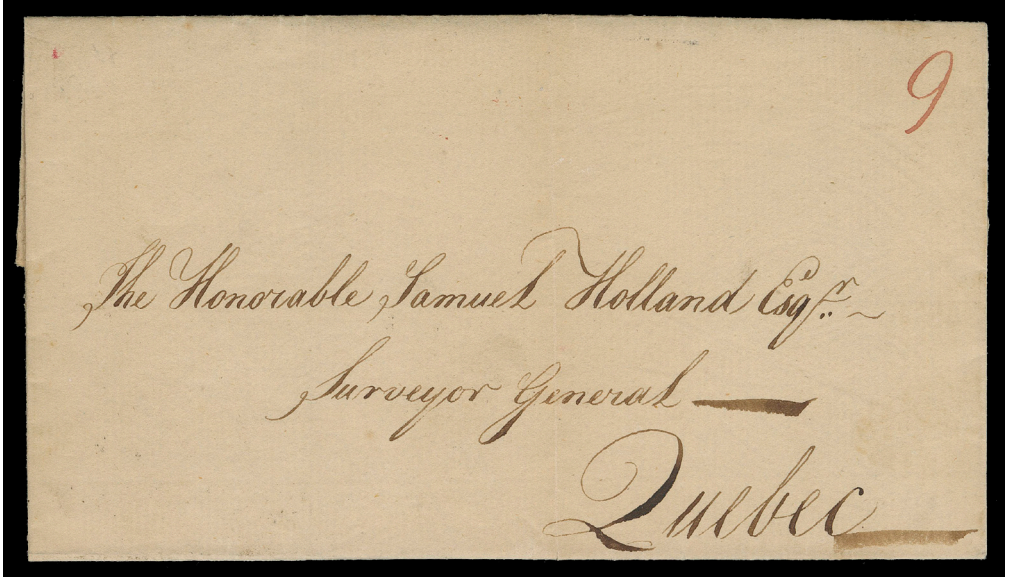 9
The Honorable Samuel Holland Esqr.
Surveyor General
Quebec